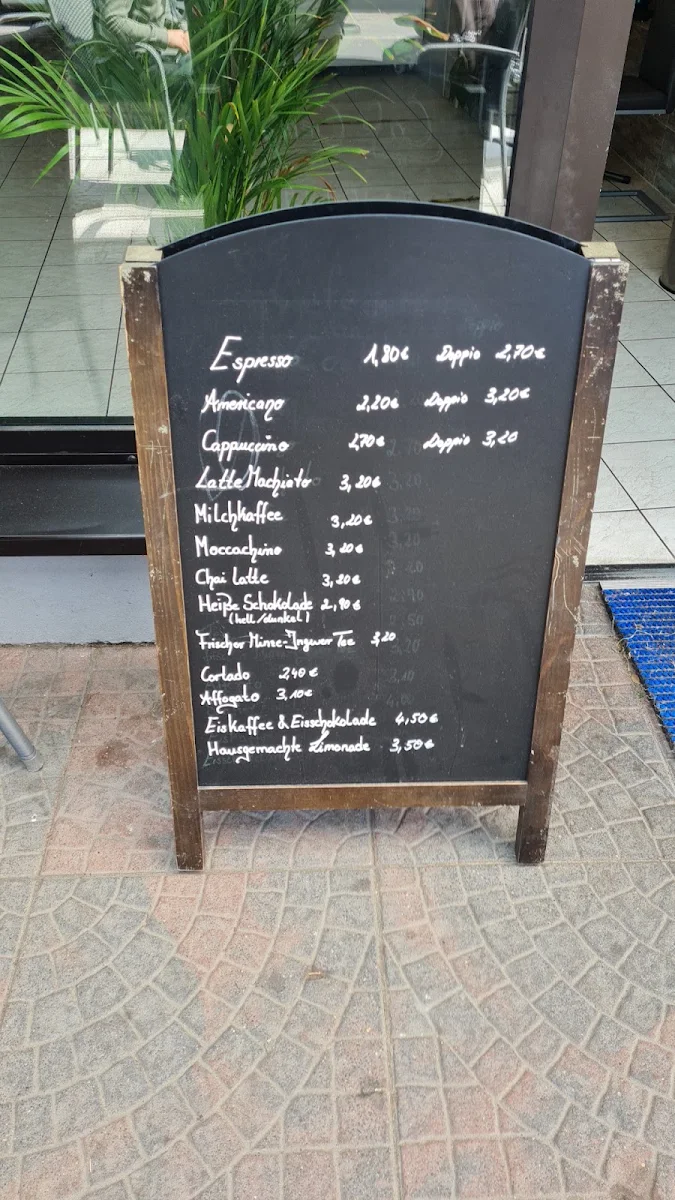 Espresso 1,80€ Doppio 2,70€
Americano 2,20€ Doppio 3,20€
Cappuccino 2,70€ Doppio 3,20
Latte Machiato 3,20€
Milchkaffee 3,20€
Moccachino 3,20€
Chai Latte 3,20€
Heiße Schokolade 2,90€
(hell/dunkel)
Frischer Minze-Ingwer Tee 3,20
Cortado 2,40€
Affogato 3,10€
Eiskaffee & Eisschokolade 4,50€
Hausgemachte Limonade 3,50€